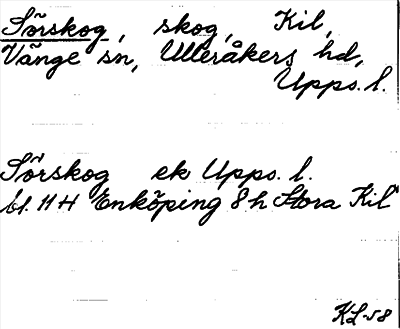 Sörskog, skog, Kil,
Vänge sn, Ulleråkers hd,
Upps. l.
Sörskog ek Upps. l.
bl. 11 H Enköping 8 h Stora Kil
KL-58